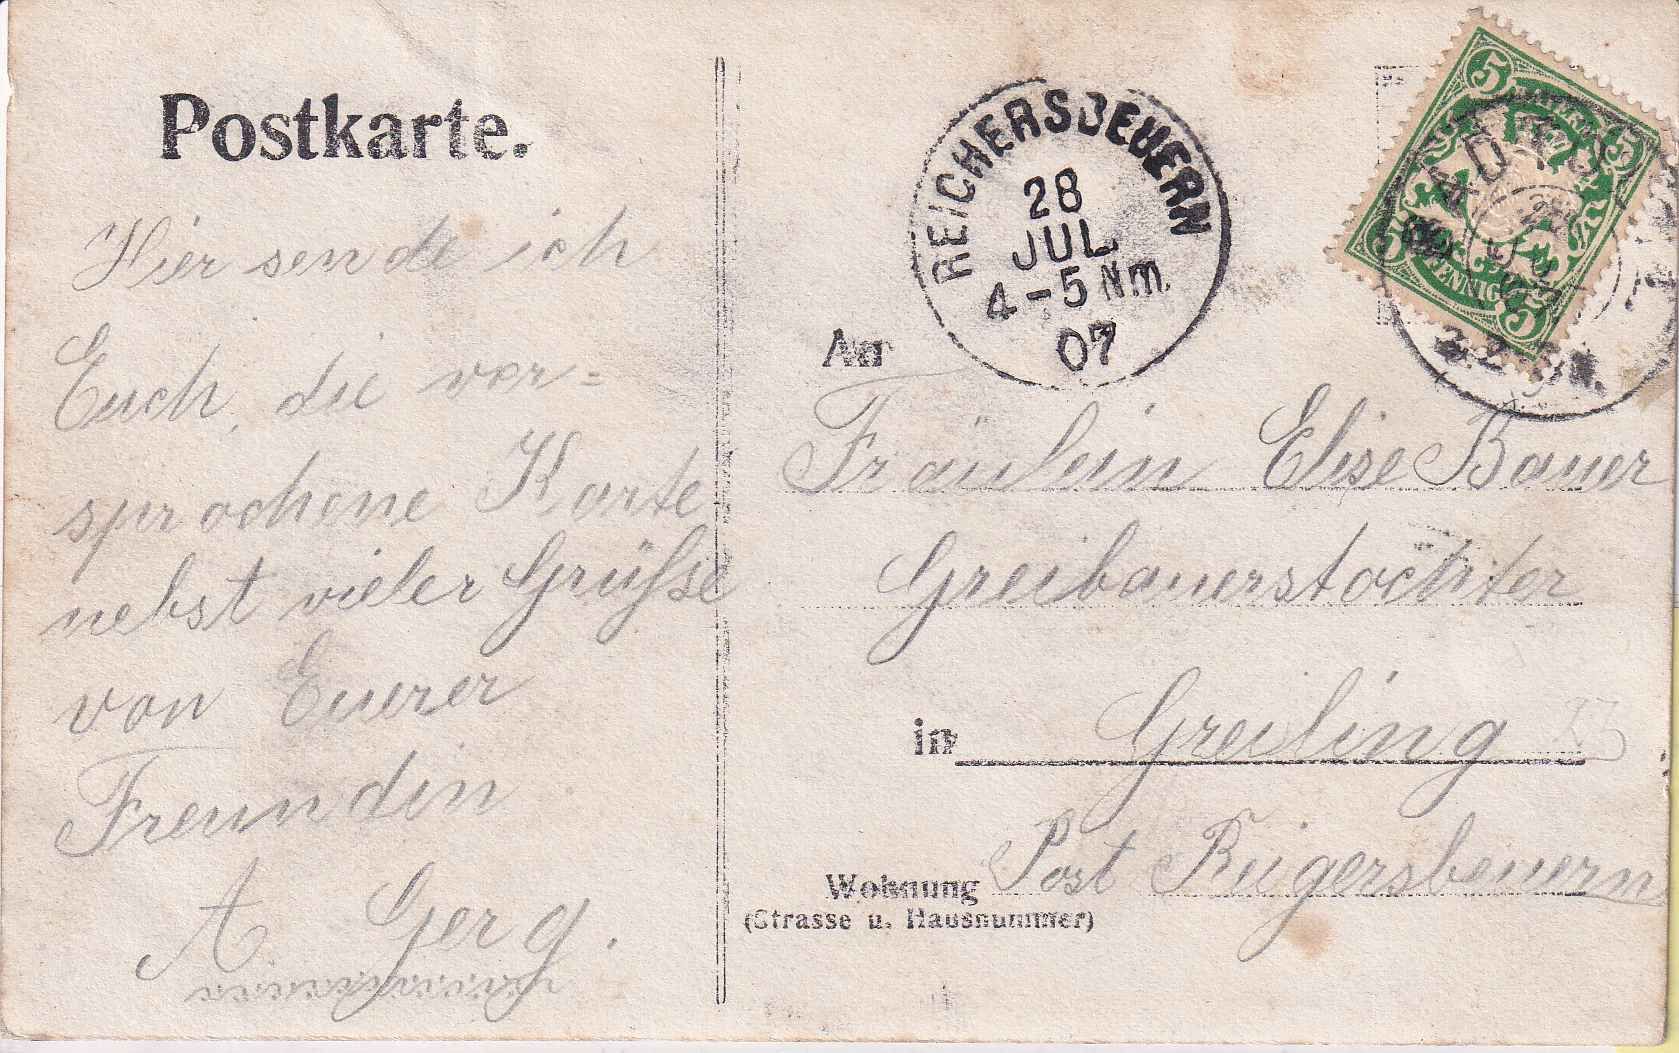 Postkarte.
Hier sende ich
Euch, die ver=
sprochene Karte
nebst vieler Grüße
von Eurer
Freundin
A Gerg.
REICHERSBEUERN
28
JUL
4-5 Nm.
07
5
5
5
5
PFENNIG
An
Fräulein Elise Bauer
Greibauerstochter
in Greiling
Wohnung Post Reigersbeuern
(Strasse u. Hausnummer)